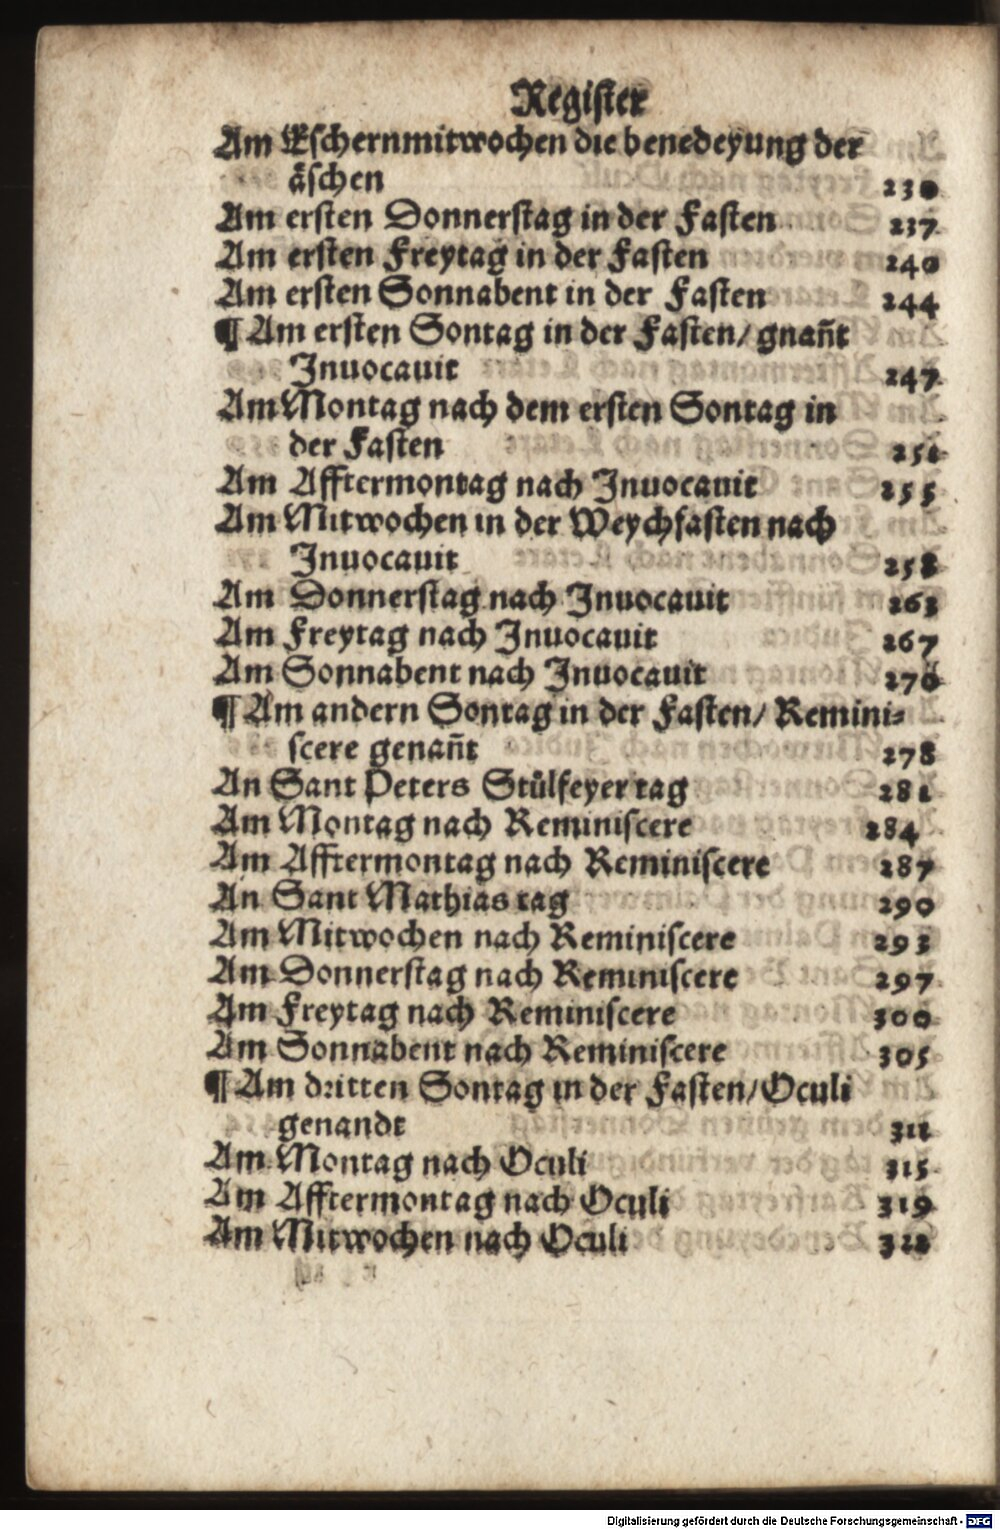 Register
Am Eschernmitwochen die benedeyung der
äschen 230
Am ersten Donnerstag in der Fasten 237
Am ersten Freytag in der Fasten 240
Am ersten Sonnabent in der Fasten 244
¶ Am ersten Sontag in der Fasten/ gnañt
Inuocauit 247
Am Montag nach dem ersten Sontag in
der Fasten 251
Am Afftermontag nach Inuocauit 255
Am Mitwochen in der Weychfasten nach
Inuocauit 258
Am Donnerstag nach Inuocauit 263
Am Freytag nach Inuocauit 267
Am Sonnabent nach Inuocauit 270
¶ Am andern Sontag in der Fasten/ Remini⸗
scere genañt 278
An Sant Peters Stůlfeyer tag 281
Am Montag nach Reminiscere 284
Am Afftermontag nach Reminiscere 287
An Sant Mathias tag 290
Am Mitwochen nach Reminiscere 293
Am Donnerstag nach Reminiscere 297
Am Freytag nach Reminiscere 300
Am Sonnabent nach Reminiscere 305
¶ Am dritten Sontag in der Fasten/ Oculi
genandt 311
Am Montag nach Oculi 315
Am Afftermontag nach Oculi 319
Am Mitwochen nach Oculi
Digitalisierung gefördert durch die Deutsche Forschungsgemeinschaft - DFG